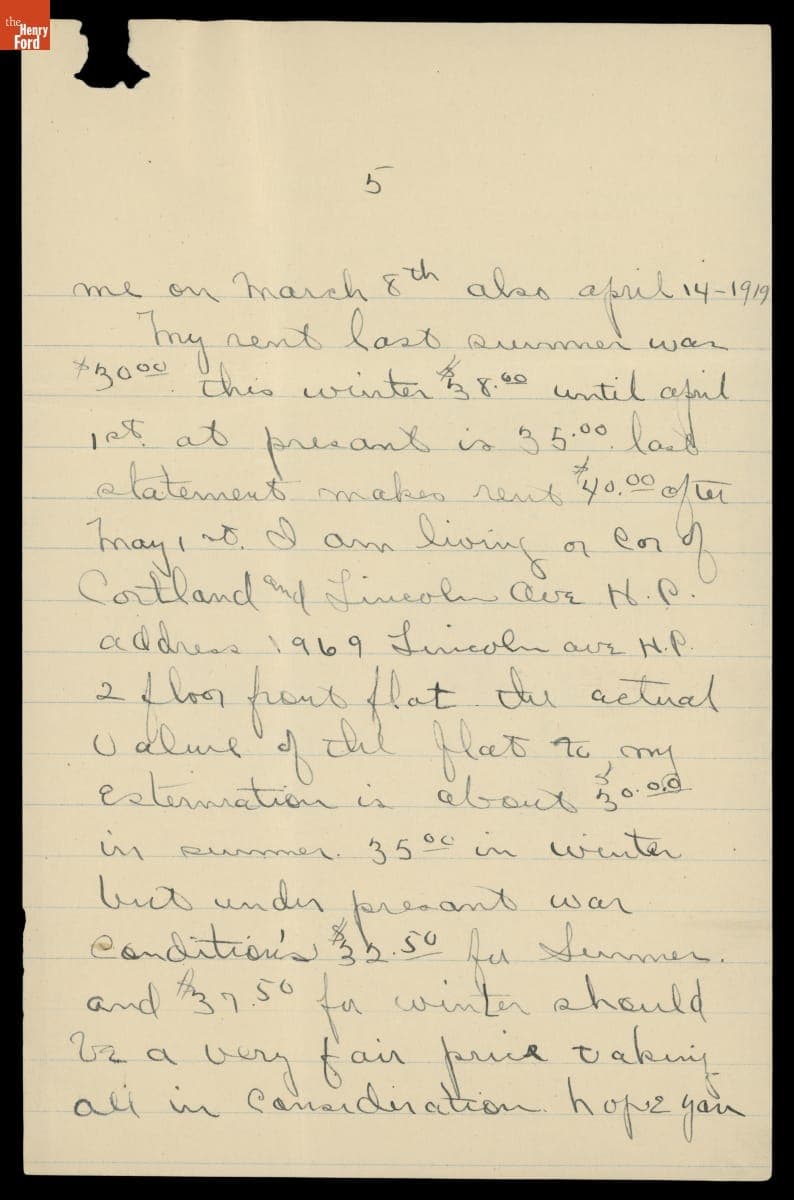 the
Henry
Ford
5
me on March 8th also april 14-1919
My rent last summer was
$30.00 this winter $38.00 until april
1st. at presant is 35.00. last
statement makes rent $40.00 after
May 1st. I am living or Cor of
Cortland and Lincoln Ave H.P.
address 1969 Lincoln ave H.P.
2 floor front flat. the actual
value of the flat to my
Estermration is about $30.00
in summer. 35.00 in winter
but under presant war
condition's $32.50 for Summer.
and $37.50 for winter should
be a very fair price taking
all in consideration. hope you